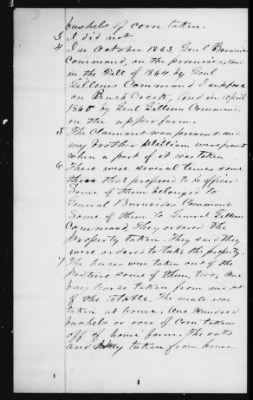 bushels of corn taken.
3 I did not
4 In October 1863. Genl Burnside
Command, on the premises, and
in the Fall of 1864 by Genl
Gillems Command I suppose
on Brush Creek, and in April
1865 by Genl Gillems Command,
on the upper farm.
5 The Claimant was present and
my brother William was present
when a part of it was taken
6 There were several times some
that professed to be officers
Some of them belonged to
General Burnsides Command
Some of them to General Gillems
Command. They ordered the
property taken. They said they
were ordered to take the property.
7 The horses was taken out of the
pasture some of them, two, one
bay horse taken from me out
of the stable. The mule was
taken at home. One Hundred
bushels or over of Corn taken
off of home farm. The oats
and hay taken from home